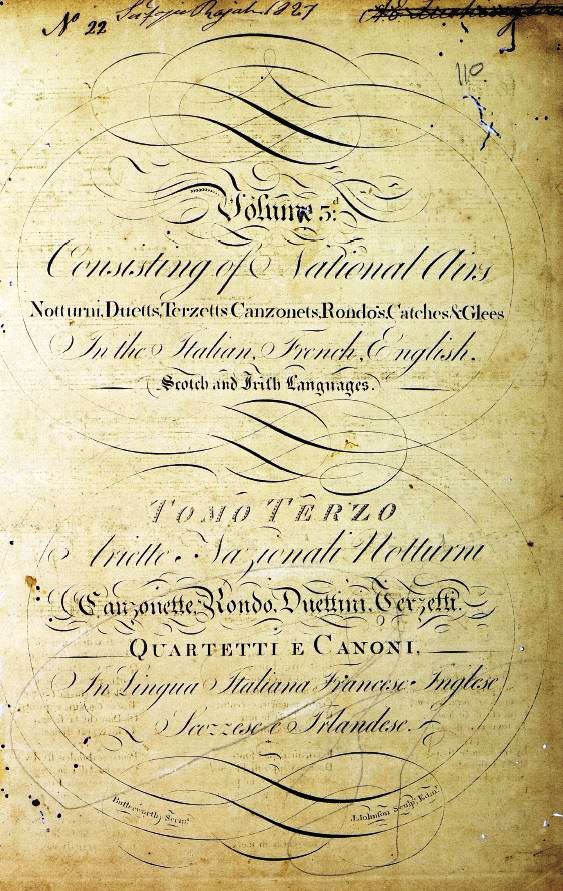 No 22
Rajah 1827
110.
Volume 3.d
Consisting of National Airs
Notturni, Duetts, Terzetts Canzonets, Rondo's, Catches & Glees
In the Italian, French, English.
Scotch and Irish Languages.
TOMO TERZO
Ariette Nazionali Notturni
Canzonette, Rondo, Duettini, Terzetti.
QUARTETTI E CANONI,
In Lingua Italiana Francese Inglese
Scozzese e Irlandese.
Butterworth Sculpt.
J. Johnson Sculpt. Edinr.